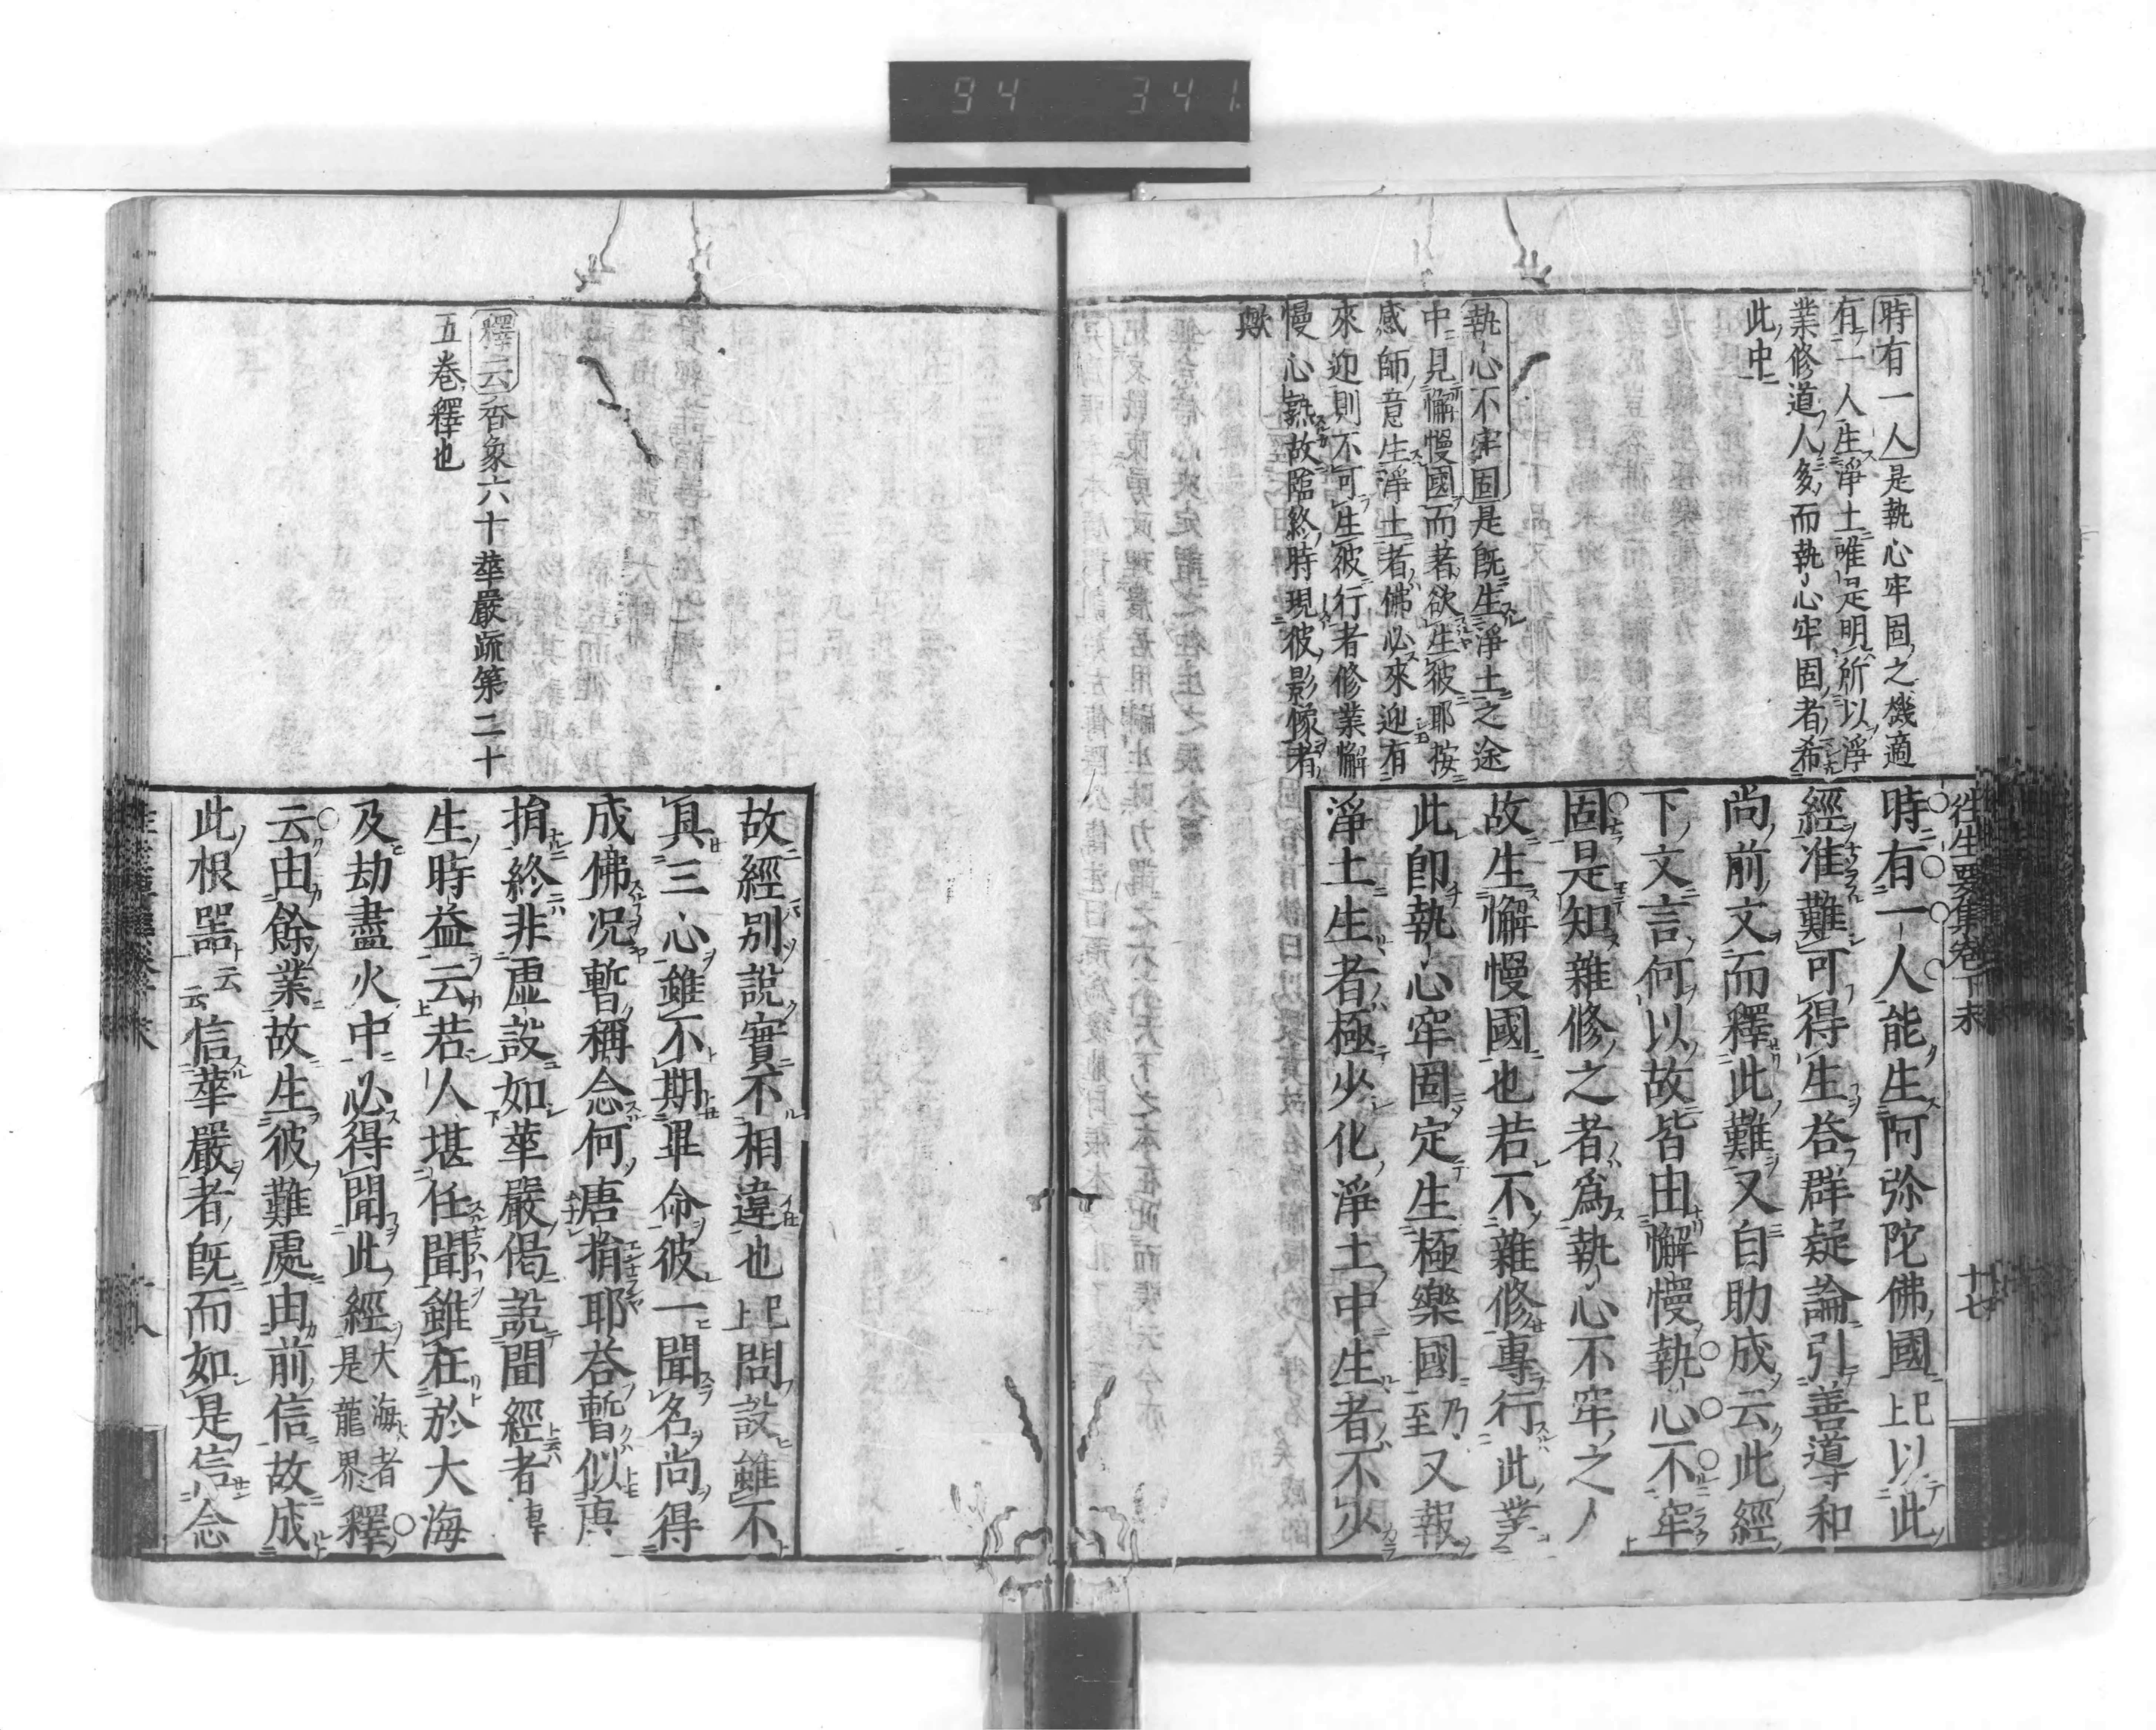 94 341
往生要集卷下末
十七
時有一人是執心牢固之機適
有一人生淨土唯是明所以淨
業修道人多而執心牢固者希
此中
執心不牢固是既生淨土之途
中見懈慢國而著欲生彼耶按
感師意生淨土者佛必來迎有
來迎則不可生彼行者修業懈
慢心熟故臨終時現彼影像者
歟
時有一人能生阿弥陀佛國已上以此
經准難可得生荅群疑論引善導和
尚前文而釋此難又自助成云此經
下文言何以故皆由懈慢執心不牢
固是知雜修之者為執心不牢之人
故生懈慢國也若不雜修專行此業
此即執心牢固定生極樂國乃至又報
淨土生者極少化淨土中生者不少
釋云香象六十華嚴疏第二十
五卷釋也
故經別說實不相違也已上問設雖不
具三心雖不期畢命彼一聞名尚得
成佛況暫稱念何唐捐耶荅暫似唐
捐終非虛設如華嚴偈說聞經者轉
生時益云若人堪任聞雖在於大海
及劫盡火中必得聞此經大海者是龍界釋
云由餘業故生彼難處由前信故成
此根器云云信華嚴者既而如是信念
十八